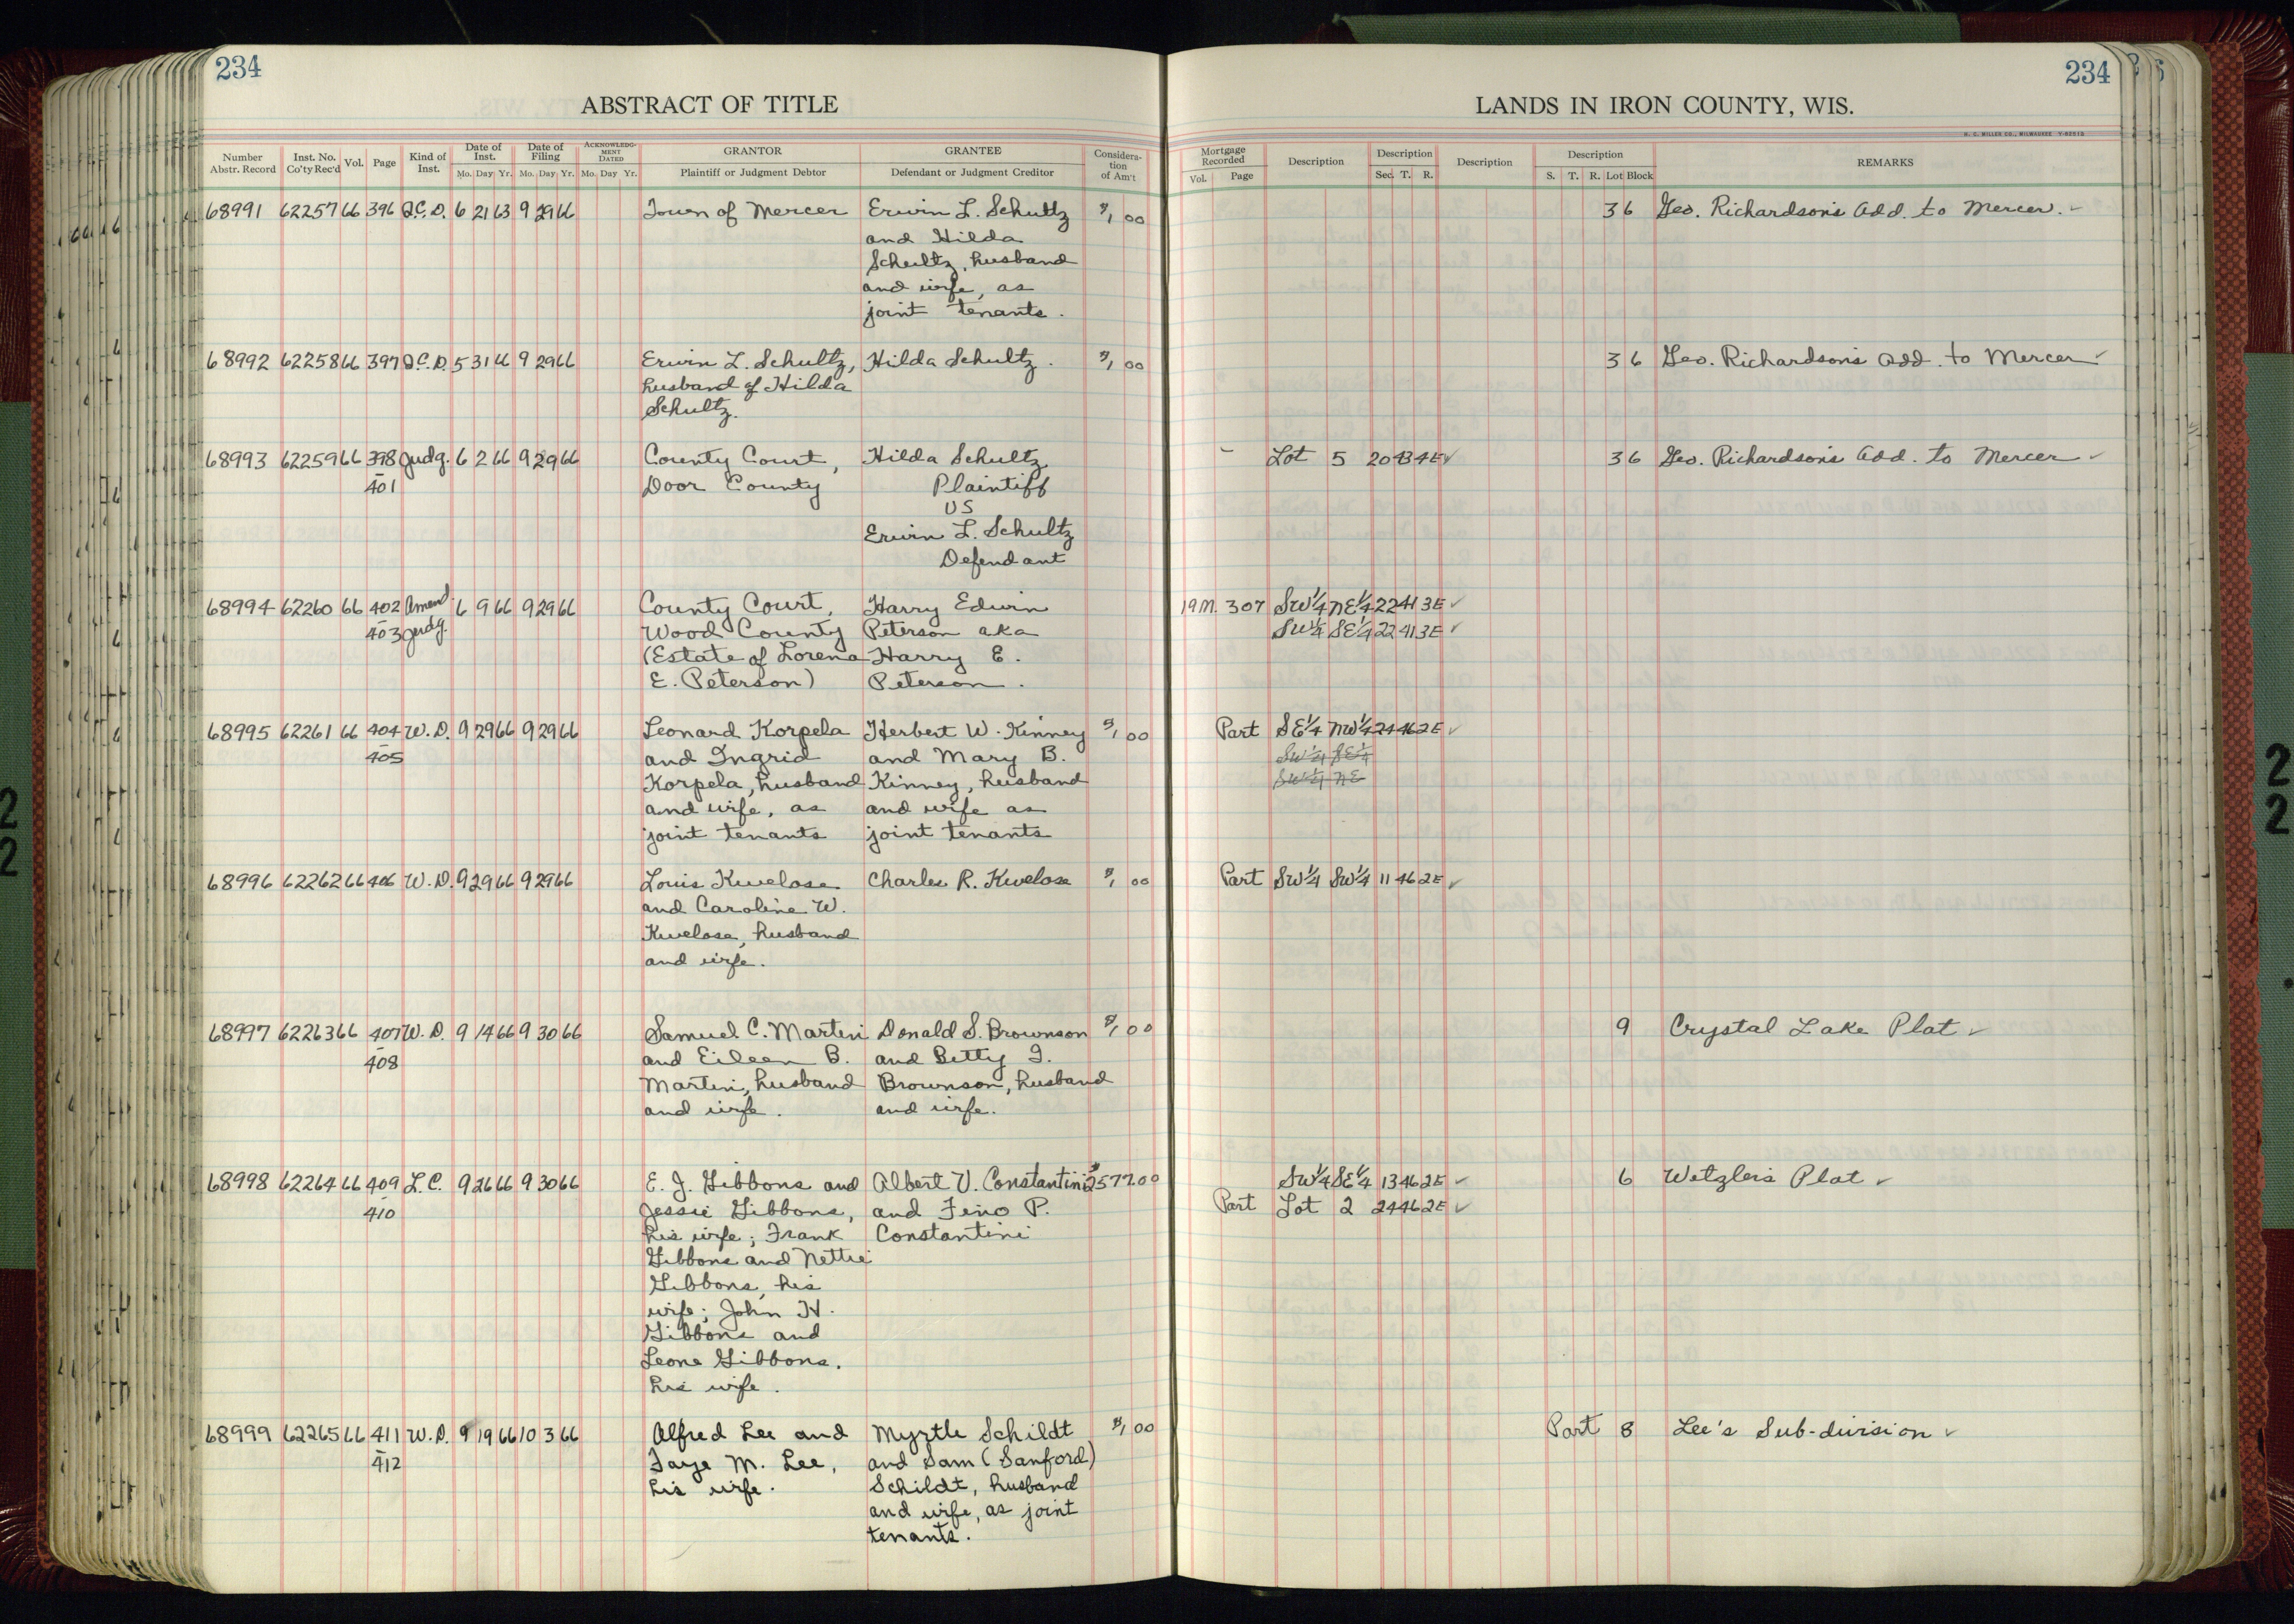 234
234
ABSTRACT OF TITLE
LANDS IN IRON COUNTY, WIS.
H. C. MILLER CO., MILWAUKEE
Number Abstr. Record | Inst. No. Co'ty Rec'd | Vol. | Page | Kind of Inst. | Date of Inst. Mo. Day Yr. | Date of Filing Mo. Day Yr. | ACKNOWLEDGMENT DATED Mo. Day Yr. | GRANTOR Plaintiff or Judgment Debtor | GRANTEE Defendant or Judgment Creditor | Consideration of Am't | Mortgage Recorded Vol. Page | Description | Description Sec. T. R. | Description | Description S. T. R. Lot Block | REMARKS
68991 62257 66 396 Q.C.D. 6 21 63 9 29 66 Town of Mercer Erwin L. Schultz $1 00 3 6 Geo. Richardson's Add. to Mercer.
and Hilda
Schultz, husband
and wife, as
joint tenants.
68992 62258 66 397 Q.C.D. 5 31 66 9 29 66 Erwin L. Schultz, Hilda Schultz. $1 00 3 6 Geo. Richardson's Add. to Mercer
husband of Hilda
Schultz.
68993 62259 66 398 Judg. 6 2 66 9 29 66 County Court, Hilda Schultz - Lot 5 20 43 4E 3 6 Geo. Richardson's Add. to Mercer
401 Door County Plaintiff
VS
Erwin L. Schultz
Defendant
68994 62260 66 402 Amend. 6 9 66 9 29 66 County Court, Harry Edwin 19M. 307 SW¼ NE¼ 22 41 3E
403 Judg. Wood County Peterson aka SW¼ SE¼ 22 41 3E
(Estate of Lorena Harry E.
E. Peterson) Peterson.
68995 62261 66 404 W.D. 9 29 66 9 29 66 Leonard Korpela Herbert W. Kinney $1 00 Part SE¼ NW¼ 24 46 2E
405 and Ingrid and Mary B. SW¼ SE¼
Korpela, husband Kinney, husband SW¼ NE
and wife, as and wife as
joint tenants joint tenants
68996 62262 66 406 W.D. 9 29 66 9 29 66 Louis Kwelosa Charles R. Kwelosa $1 00 Part SW¼ SW¼ 11 46 2E
and Caroline W.
Kwelosa, husband
and wife.
68997 62263 66 407 W.D. 9 14 66 9 30 66 Samuel C. Martini Donald S. Brownson $1 00 9 Crystal Lake Plat
408 and Eileen B. and Betty J.
Martini, husband Brownson, husband
and wife. and wife.
68998 62264 66 409 L.C. 9 26 66 9 30 66 E. J. Gibbons and Albert V. Constantini $2577 00 SW¼ SE¼ 13 46 2E 6 Wetzler's Plat
410 Jessie Gibbons, and Feno P. Part Lot 2 24 46 2E
his wife; Frank Constantini
Gibbons and Nettie
Gibbons, his
wife; John H.
Gibbons and
Leone Gibbons,
his wife.
68999 62265 66 411 W.D. 9 19 66 10 3 66 Alfred Lee and Myrtle Schildt $1 00 Part 8 Lee's Sub-division
412 Faye M. Lee, and Sam (Sanford)
his wife. Schildt, husband
and wife, as joint
tenants.